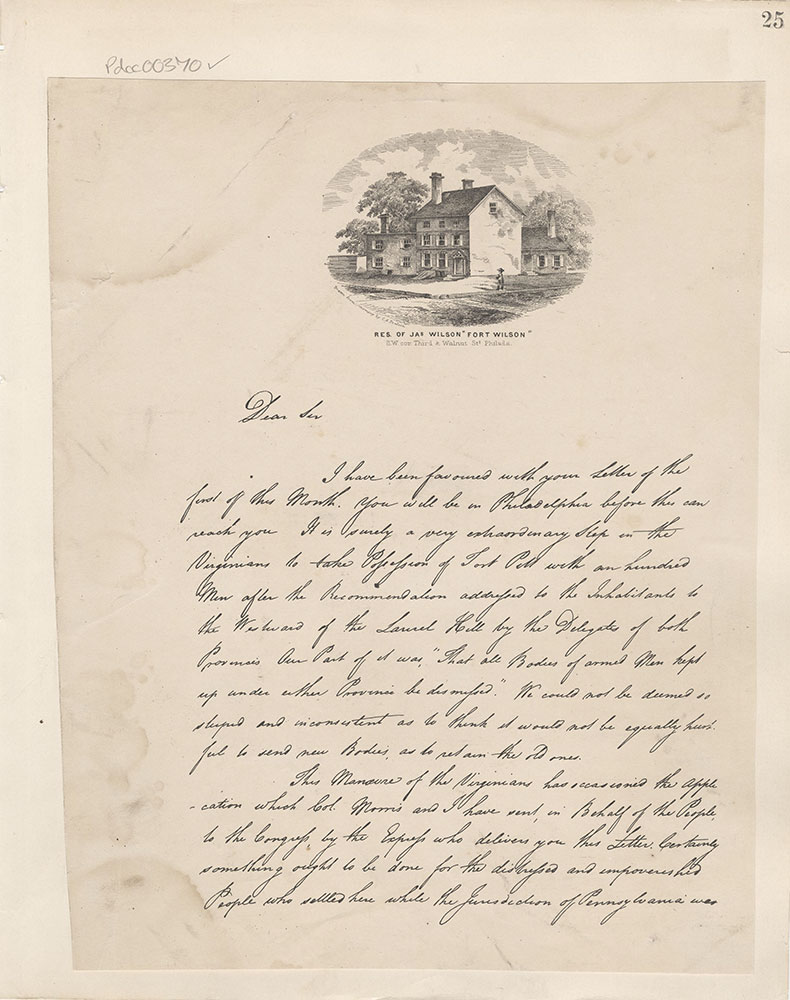 25
Pdcc00370 ✓
RES. OF JAS WILSON "FORT WILSON"
S.W. cor. Third & Walnut Sts Philada.
Dear Sir
I have been favoured with your Letter of the
first of this Month. You will be in Philadelphia before this can
reach you It is surely a very extraordinary Step in the
Virginians to take Possession of Fort Pitt with an hundred
Men after the Recommendation addressed to the Inhabitants to
the Westward of the Laurel Hill by the Delegates of both
Provinces Our Part of it was, "That all Bodies of armed Men kept
up under either Province be dismissed." We could not be deemed so
stupid and inconsistent as to think it would not be equally hurt-
ful to send new Bodies, as to retain the old ones.
This Manœuvre of the Virginians has occasioned the Appli
-cation which Col. Morris and I have sent, in Behalf of the People,
to the Congress, by the Express who delivers you this Letter. Certainly
something ought to be done for the distressed and impoverished
People who settled here while the Jurisdiction of Pennsylvania was